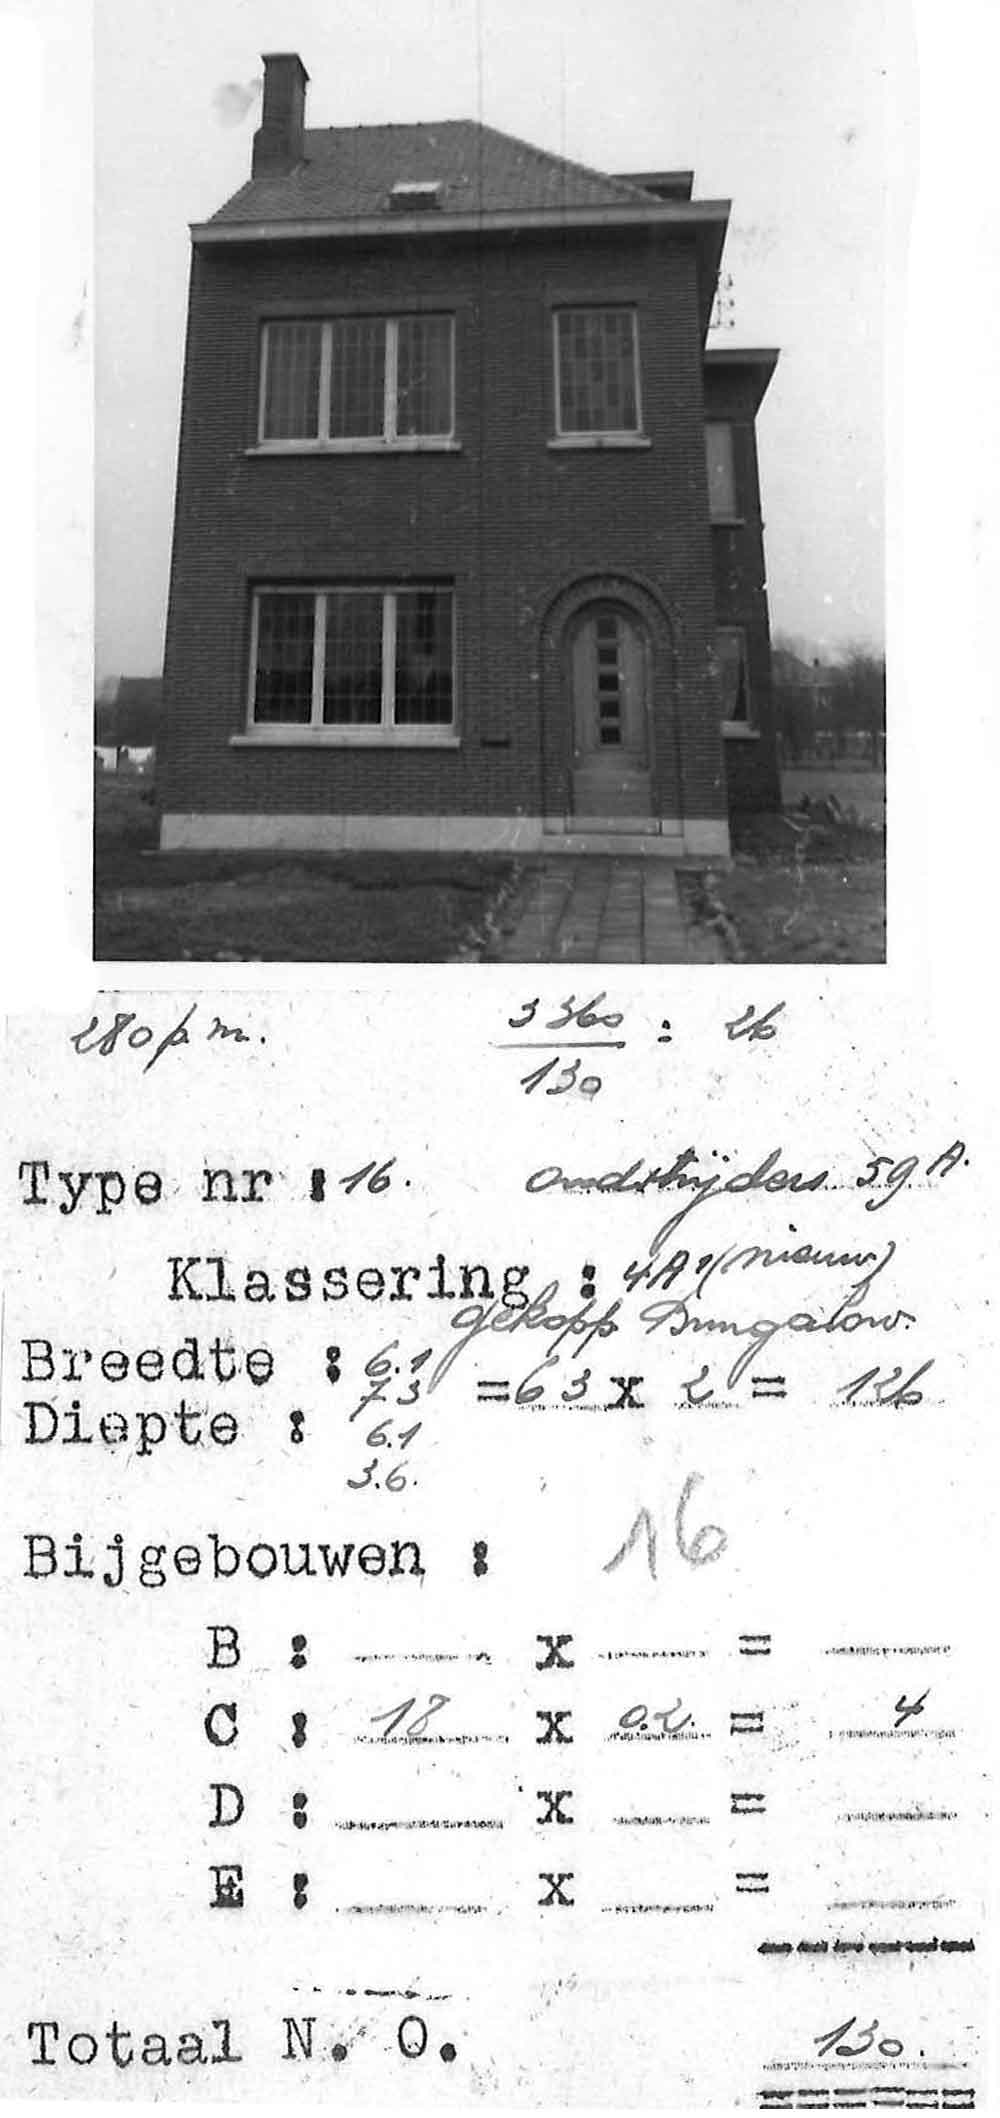 280 p.m. 3360 : 26
130
Type nr : 16. oudstrijders 59 A.
Klassering : 4A (nieuw)
gekopp. Bungalow.
Breedte : 6.1
7.3 = 63 x 2 = 126
Diepte : 6.1
3.6.
Bijgebouwen : 16
B : x =
C : 18 x 0.2. = 4
D : x =
E : x =
Totaal N. O. 130.